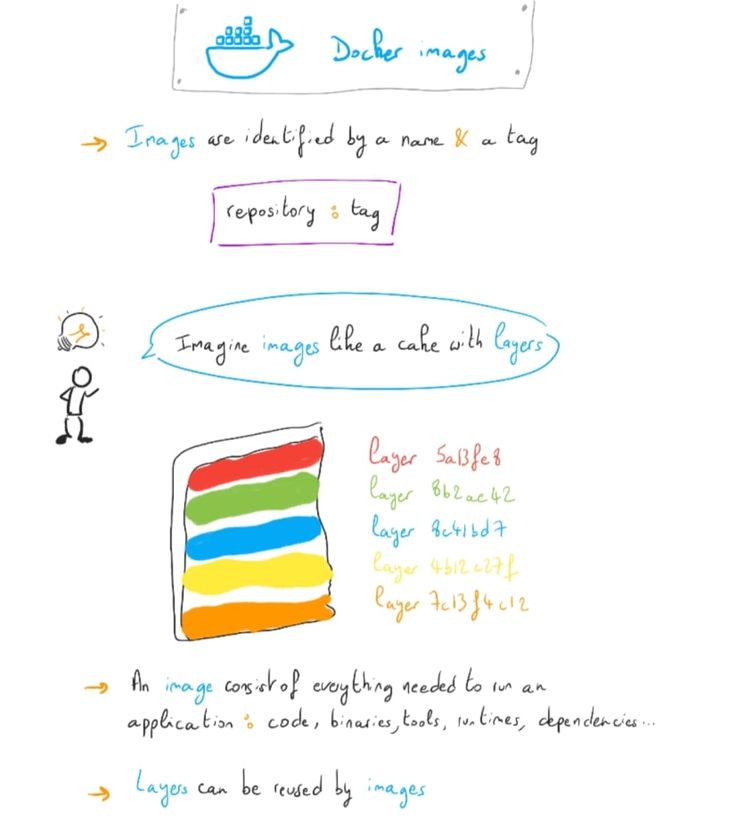 Docker images
Images are identified by a name & a tag
repository : tag
Imagine images like a cake with layers
layer 5a13fe8
layer 8b2ac42
layer 8c41bd7
layer 4b12c27f
layer 7c13f4c12
An image consist of everything needed to run an
application : code, binaries, tools, runtimes, dependencies...
Layers can be reused by images